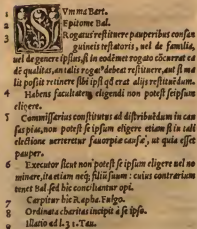 1 Vmma Bart.
2 Epitome Bal.
3 Rogatus restituere pauperibus consan
guineis testatoris, uel de familia,
uel de genere ipsius, si in eodẽmet rogato cõcurrat ea
dẽ qualitas, an talis rogatꝰ debeat restituere, aut si ma
lit possit retinere sibi ipsi qđ erat alijs restituẽdum.
4 Habens facultatem eligendi non potest seipsum
eligere.
5 Commissarius constitutus ad distribuendum in cau
sas pias, non potest se ipsum eligere etiam si in tali
electione verteretur fauor piæ causæ, ut quia esset
pauper.
6 Executor sicut non potest se ipsum eligere uel no
minare, ita etiam neq; filiũ suum: cuius contrarium
tenet Bal. sed hic conciliantur opi.
7 Carpitur hic Rapha. Fulgo.
8 Ordinata charitas incipit à se ipso.
9 Illatio ad l. 31. Tau.